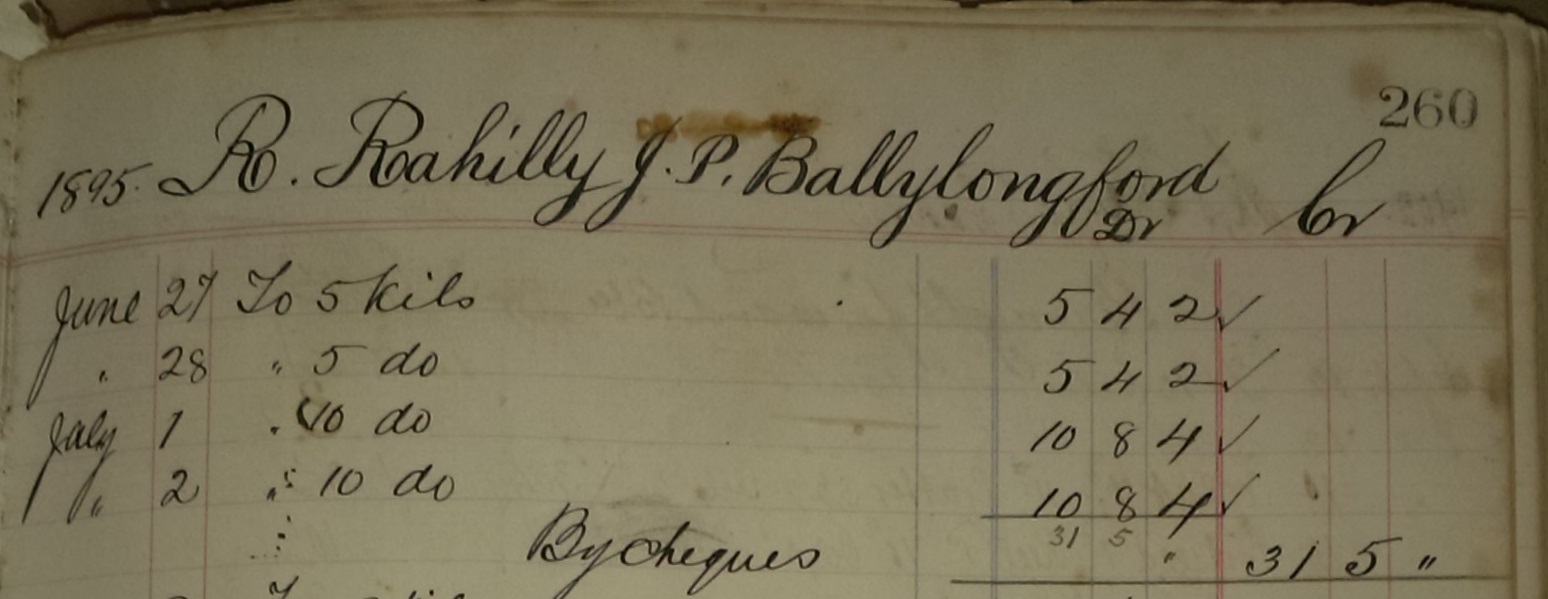 260
1895. R. Rahilly J. P. Ballylongford
Dr Cr
June 27 To 5 kils 5 4 2 ✓
" 28 " 5 do 5 4 2 ✓
July 1 " 10 do 10 8 4 ✓
" 2 " 10 do 10 8 4 ✓
31 5 "
By cheques 31 5 "